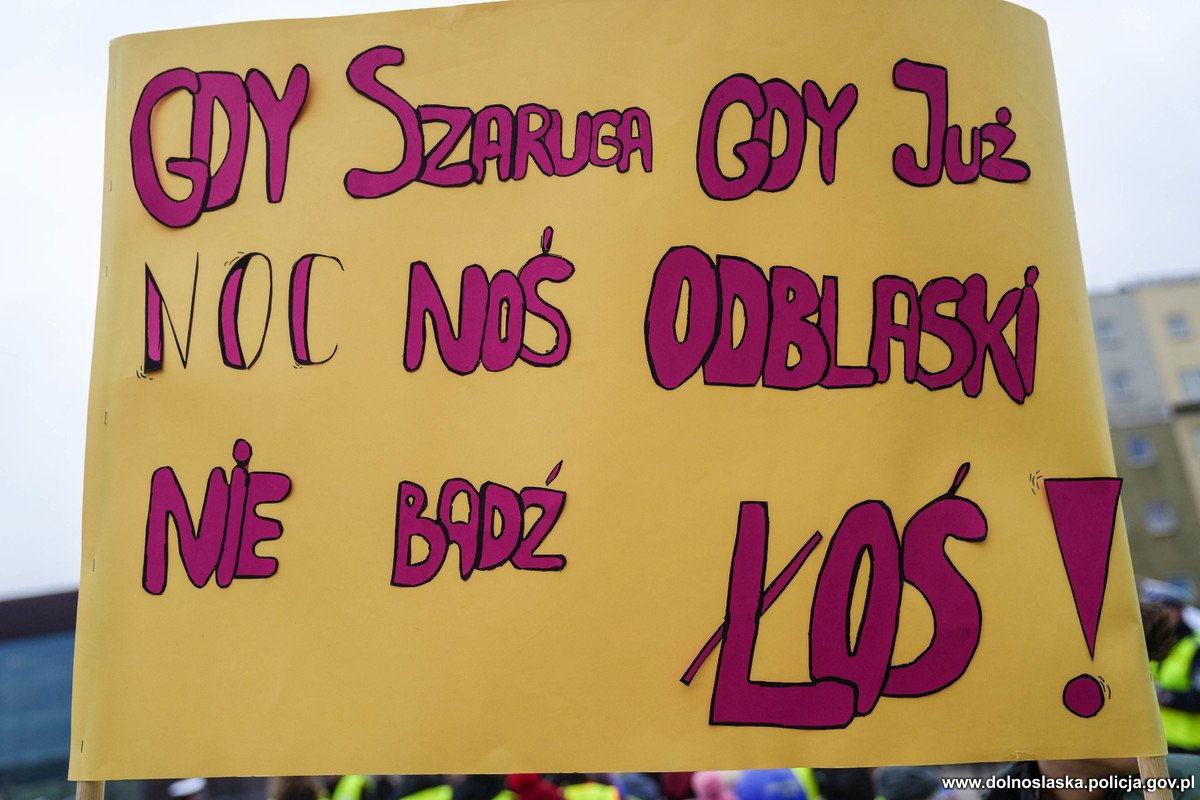 GDY SZARUGA GDY JUŻ
NOC NOŚ ODBLASKI
NIE BĄDŹ ŁOŚ!
www.dolnoslaska.policja.gov.pl